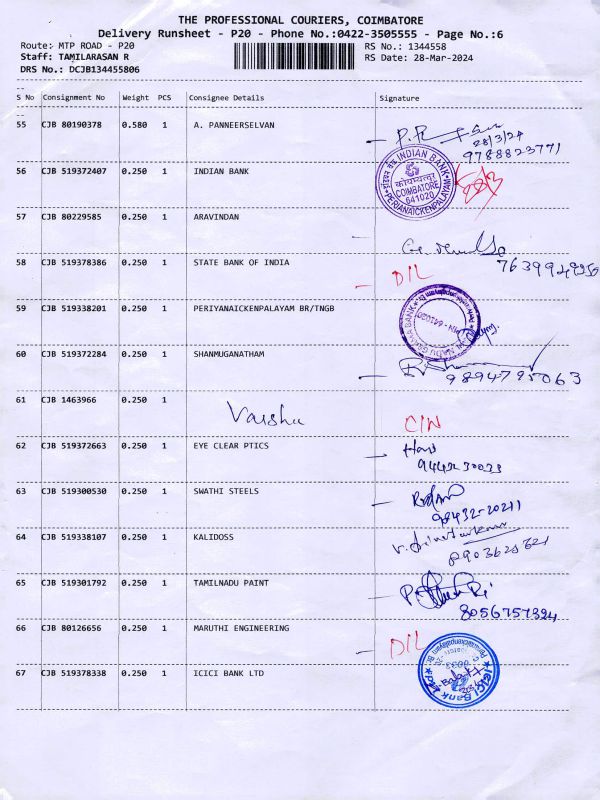 THE PROFESSIONAL COURIERS, COIMBATORE
Delivery Runsheet - P20 - Phone No.:0422-3505555 - Page No.:6
Route: MTP ROAD - P20 RS No.: 1344558
Staff: TAMILARASAN R RS Date: 28-Mar-2024
DRS No.: DCJB134455806
S No Consignment No Weight PCS Consignee Details Signature
55 CJB 80190378 0.580 1 A. PANNEERSELVAN
28/3/24
9788823771
56 CJB 519372407 0.250 1 INDIAN BANK
INDIAN BANK
COIMBATORE
641020
PERIANAICKENPALAYAM
57 CJB 80229585 0.250 1 ARAVINDAN
58 CJB 519378386 0.250 1 STATE BANK OF INDIA
D/L
59 CJB 519338201 0.250 1 PERIYANAICKENPALAYAM BR/TNGB
PIN - 641020
60 CJB 519372284 0.250 1 SHANMUGANATHAM
9894795063
61 CJB 1463966 0.250 1
Varshu
C/N
62 CJB 519372663 0.250 1 EYE CLEAR PTICS
63 CJB 519300530 0.250 1 SWATHI STEELS
98432-20211
64 CJB 519338107 0.250 1 KALIDOSS
65 CJB 519301792 0.250 1 TAMILNADU PAINT
8056757324
66 CJB 80126656 0.250 1 MARUTHI ENGINEERING
D/L
67 CJB 519378338 0.250 1 ICICI BANK LTD
ICICI Bank Ltd